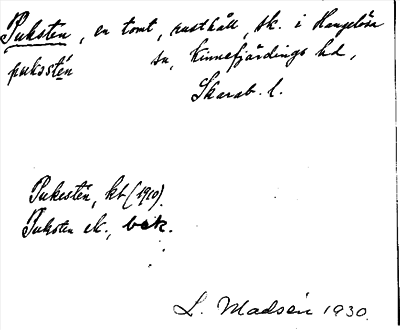 Puksten, en tomt, rusthåll, sk. i Hangelösa
pukstén sn, Kinnefjärdings hd,
Skarab. l.
Pukestén, kb (1910).
Puksten ek., bek.
L. Madsén 1930.